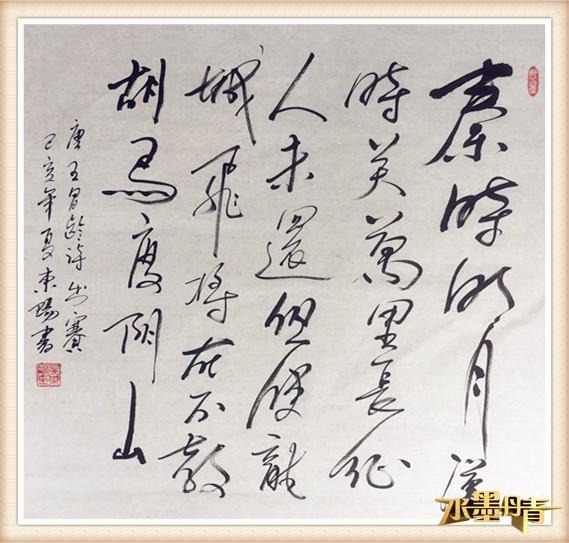 秦時明月漢
時关萬里長征
人未還但使龍
城飛將在不教
胡馬度阴山
唐王昌齡詩出賽
己亥年夏東陽書
水墨丹青